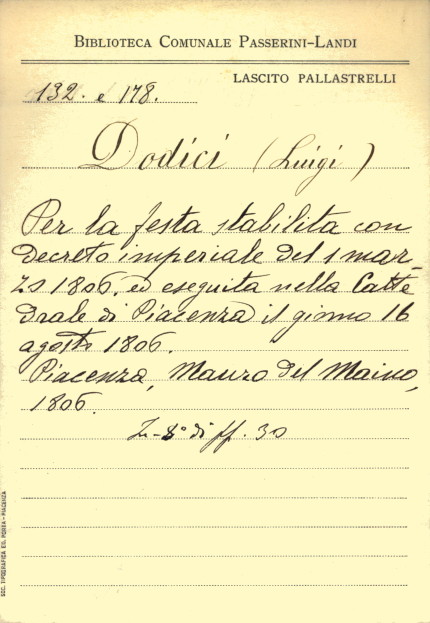 BIBLIOTECA COMUNALE PASSERINI-LANDI
LASCITO PALLASTRELLI
132. e 178.
Dodici (Luigi)
Per la festa stabilita con
Decreto imperiale del 1 mar
zo 1806. ed eseguita nella Catte
drale di Piacenza il giorno 16
agosto 1806.
Piacenza, Mauro del Maino,
1806.
In-8º di ff. 30
SOC. TIPOGRAFICA ED. PORTA - PIACENZA